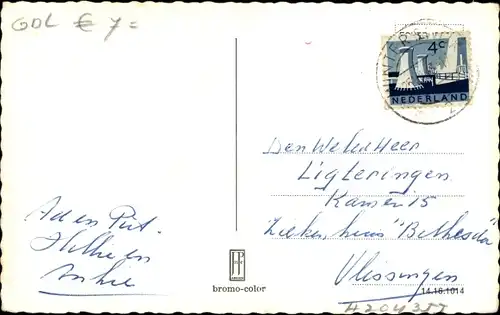 GDL € 7=
4c
NEDERLAND
Den Weled Heer
Ligteringen
Kamer 15
Ziekenhuis "Bethesda"
Vlissingen
Ad en Piet
en
bromo-color
14.18.1014